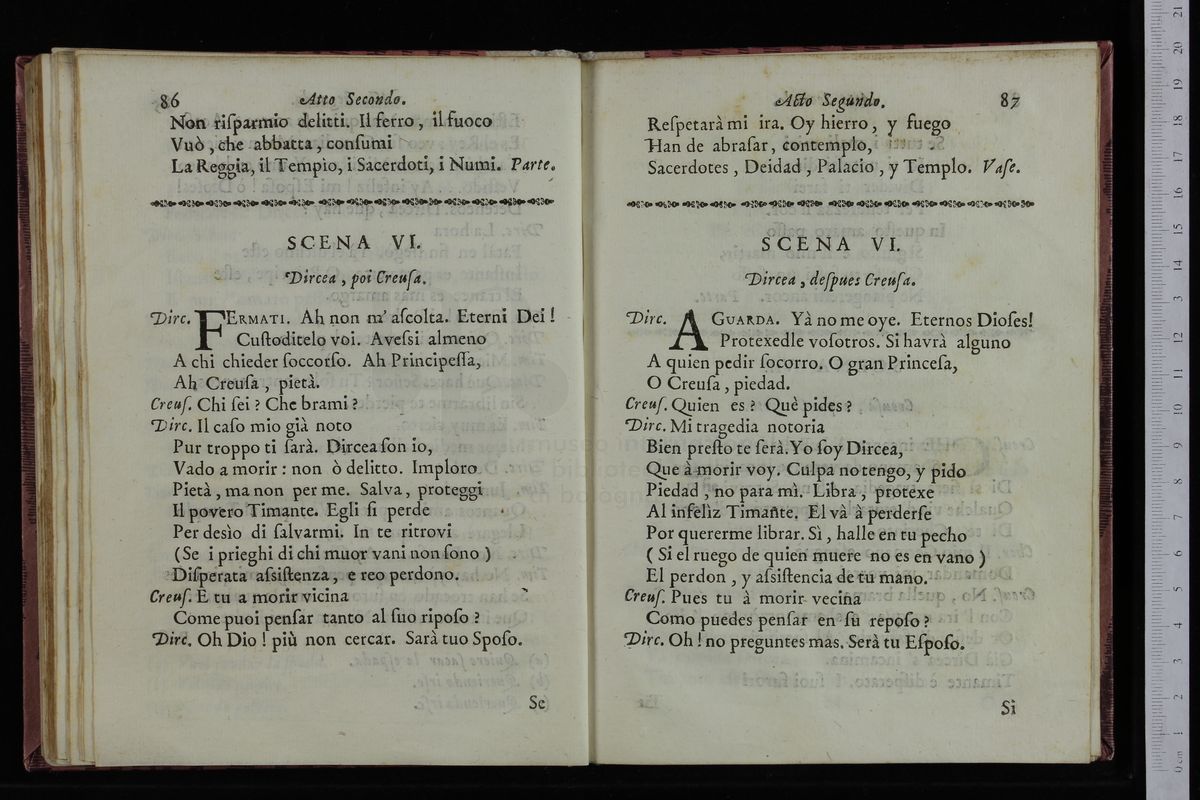 86
Atto Secondo.
Non riſparmio delitti. Il ferro, il fuoco
Vuò, che abbatta, conſumi
La Reggia, il Tempio, i Sacerdoti, i Numi. Parte.
SCENA VI.
Dircea, poi Creuſa.
Dirc. FERMATI. Ah non m' aſcolta. Eterni Dei!
Cuſtoditelo voi. Aveſsi almeno
A chi chieder ſoccorſo. Ah Principeſſa,
Ah Creuſa, pietà.
Creuſ. Chi ſei? Che brami?
Dirc. Il caſo mio già noto
Pur troppo ti ſarà. Dircea ſon io,
Vado a morir: non ò delitto. Imploro
Pietà, ma non per me. Salva, proteggi
Il povero Timante. Egli ſi perde
Per desìo di ſalvarmi. In te ritrovi
(Se i prieghi di chi muor vani non ſono)
Diſperata aſsiſtenza, e reo perdono.
Creuſ. E tu a morir vicina
Come puoi penſar tanto al ſuo ripoſo?
Dirc. Oh Dio! più non cercar. Sarà tuo Spoſo.
Se
Acto Segundo.
87
Reſpetarà mi ira. Oy hierro, y fuego
Han de abraſar, contemplo,
Sacerdotes, Deidad, Palacio, y Templo. Vaſe.
SCENA VI.
Dircea, deſpues Creuſa.
Dirc. AGUARDA. Yà no me oye. Eternos Dioſes!
Protexedle voſotros. Si havrà alguno
A quien pedir ſocorro. O gran Princeſa,
O Creuſa, piedad.
Creuſ. Quien es? Què pides?
Dirc. Mi tragedia notoria
Bien preſto te ſerà. Yo ſoy Dircea,
Que à morir voy. Culpa no tengo, y pido
Piedad, no para mì. Libra, protexe
Al infelìz Timante. El và à perderſe
Por quererme librar. Sì, halle en tu pecho
(Si el ruego de quien muere no es en vano)
El perdon, y aſsiſtencia de tu mano.
Creuſ. Pues tu à morir vecina
Como puedes penſar en ſu repoſo?
Dirc. Oh! no preguntes mas. Serà tu Eſpoſo.
Si